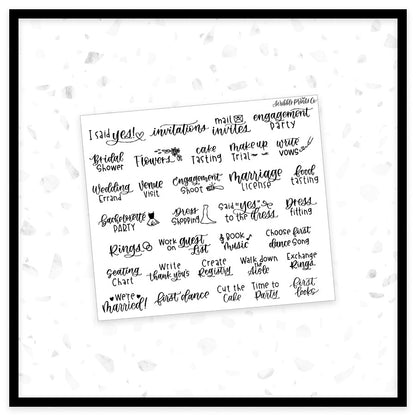 Scribble Prints Co
I said yes!
invitations
mail invites
engagement party
Bridal Shower
Flowers
cake tasting
make up Trial
write vows
Wedding Errand
Venue Visit
Engagement Shoot
marriage License
food tasting
Bachelorette PARTY
Dress Shopping
Said "yes" to the dress
Dress fitting
Rings
Work on guest List
Book music
Choose first dance Song
Seating Chart
Write thank you's
Create Registry
Walk down the aisle
Exchange Rings
We're married!
first dance
Cut the Cake
Time to Party
first looks